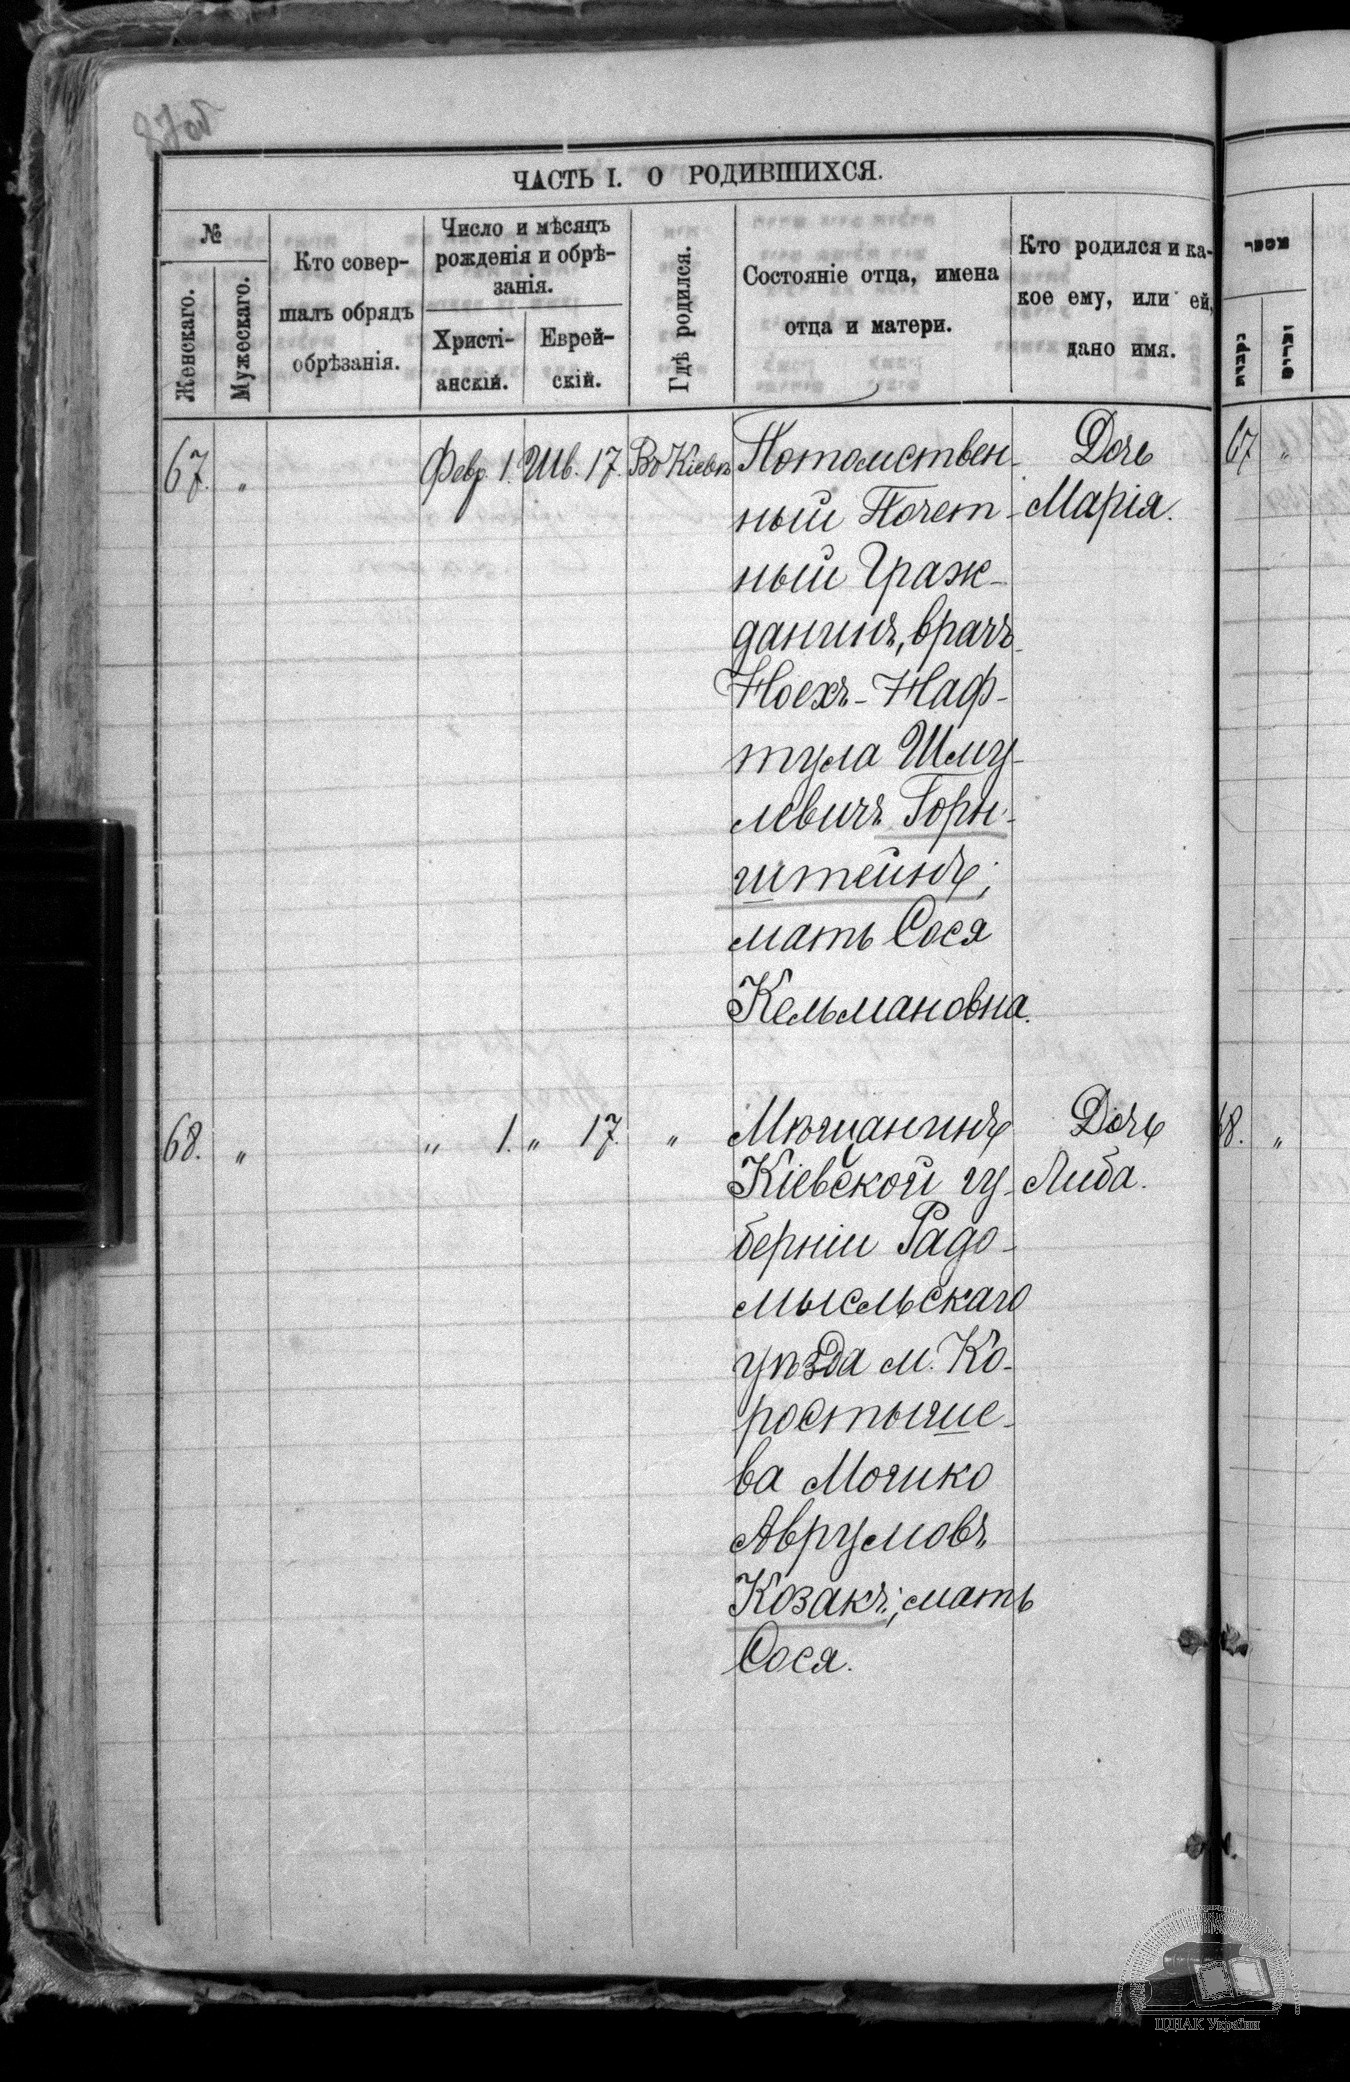 87об
ЧАСТЬ I. О РОДИВШИХСЯ.
№
Женскаго.
Мужескаго.
Кто совер-
шалъ обрядъ
обрѣзанія.
Число и мѣсяцъ
рожденія и обрѣ-
занія.
Христі-
анскій.
Еврей-
скій.
Гдѣ родился.
Состояніе отца, имена
отца и матери.
Кто родился и ка-
кое ему, или ей,
дано имя.
מספר
נקבות
זכרים
67. „ Февр. 1. Шв. 17. Въ Кіевѣ
Потомствен-
ный Почет-
ный Граж-
данинъ, врачъ
Ноехъ-Наф-
тула Шму-
левичъ Горн-
штейнъ;
мать Сося
Кельмановна.
Дочь
Марія.
67 „
68. „ „ 1. „ 17. „
Мѣщанинъ
Кіевской гу-
берніи Радо-
мысльскаго
уѣзда м. Ко-
ростыше-
ва Мошко
Аврумовъ
Козакъ; мать
Сося.
Дочь
Либа.
68. „
ЦДІАК України